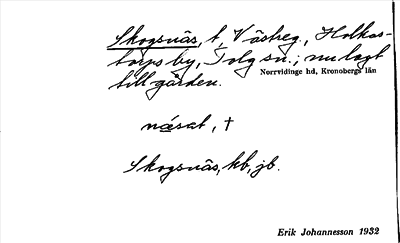 Skogsnäs, t, Västreg., Holkas-
torps by, Tolg sn.; nu lagt
till gården.
Norrvidinge hd, Kronobergs län
næsat, †
Skogsnäs, kb, jb.
Erik Johannesson 1932